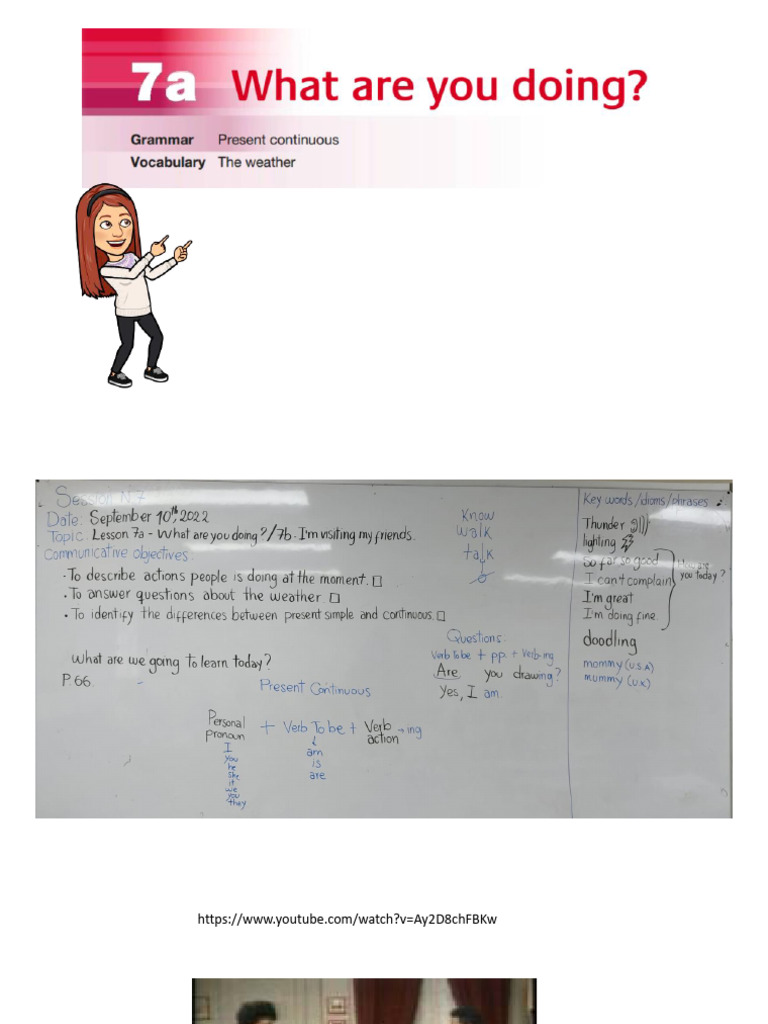 7a What are you doing?
Grammar Present continuous
Vocabulary The weather
Session N.7
Date: September 10th, 2022
Topic: Lesson 7a - What are you doing?/7b. I'm visiting my friends.
Communicative objectives:
· To describe actions people is doing at the moment. □
· To answer questions about the weather □
· To identify the differences between present simple and continuous. □
What are we going to learn today?
P 66.
Present Continuous
Personal pronoun + Verb To be + Verb action -ing
I
you
he
she
it
we
you
they
am
is
are
Know
walk
talk
Questions:
Verb To be + pp. + Verb-ing
Are you drawing?
Yes, I am.
Key words/idioms/phrases
Thunder
lighting
So far so good
I can't complain
I'm great
I'm doing fine
you today?
doodling
mommy (U.S.A)
mummy (U.K)
https://www.youtube.com/watch?v=Ay2D8chFBKw